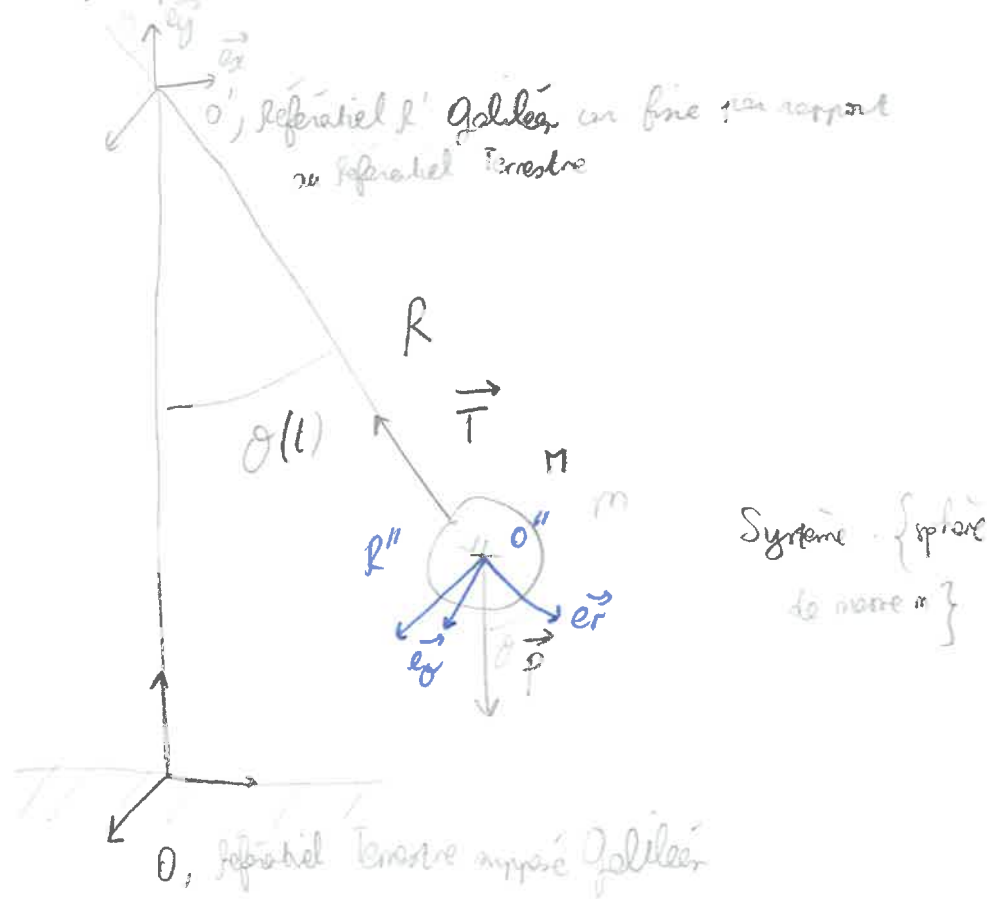 ey
ex
O', référentiel R' Galiléen car fixe par rapport
au référentiel Terrestre
R
T
θ(t)
M
m
R"
O"
Système : {sphère
de masse m}
er
eθ
θ
P
O, référentiel Terrestre supposé Galiléen